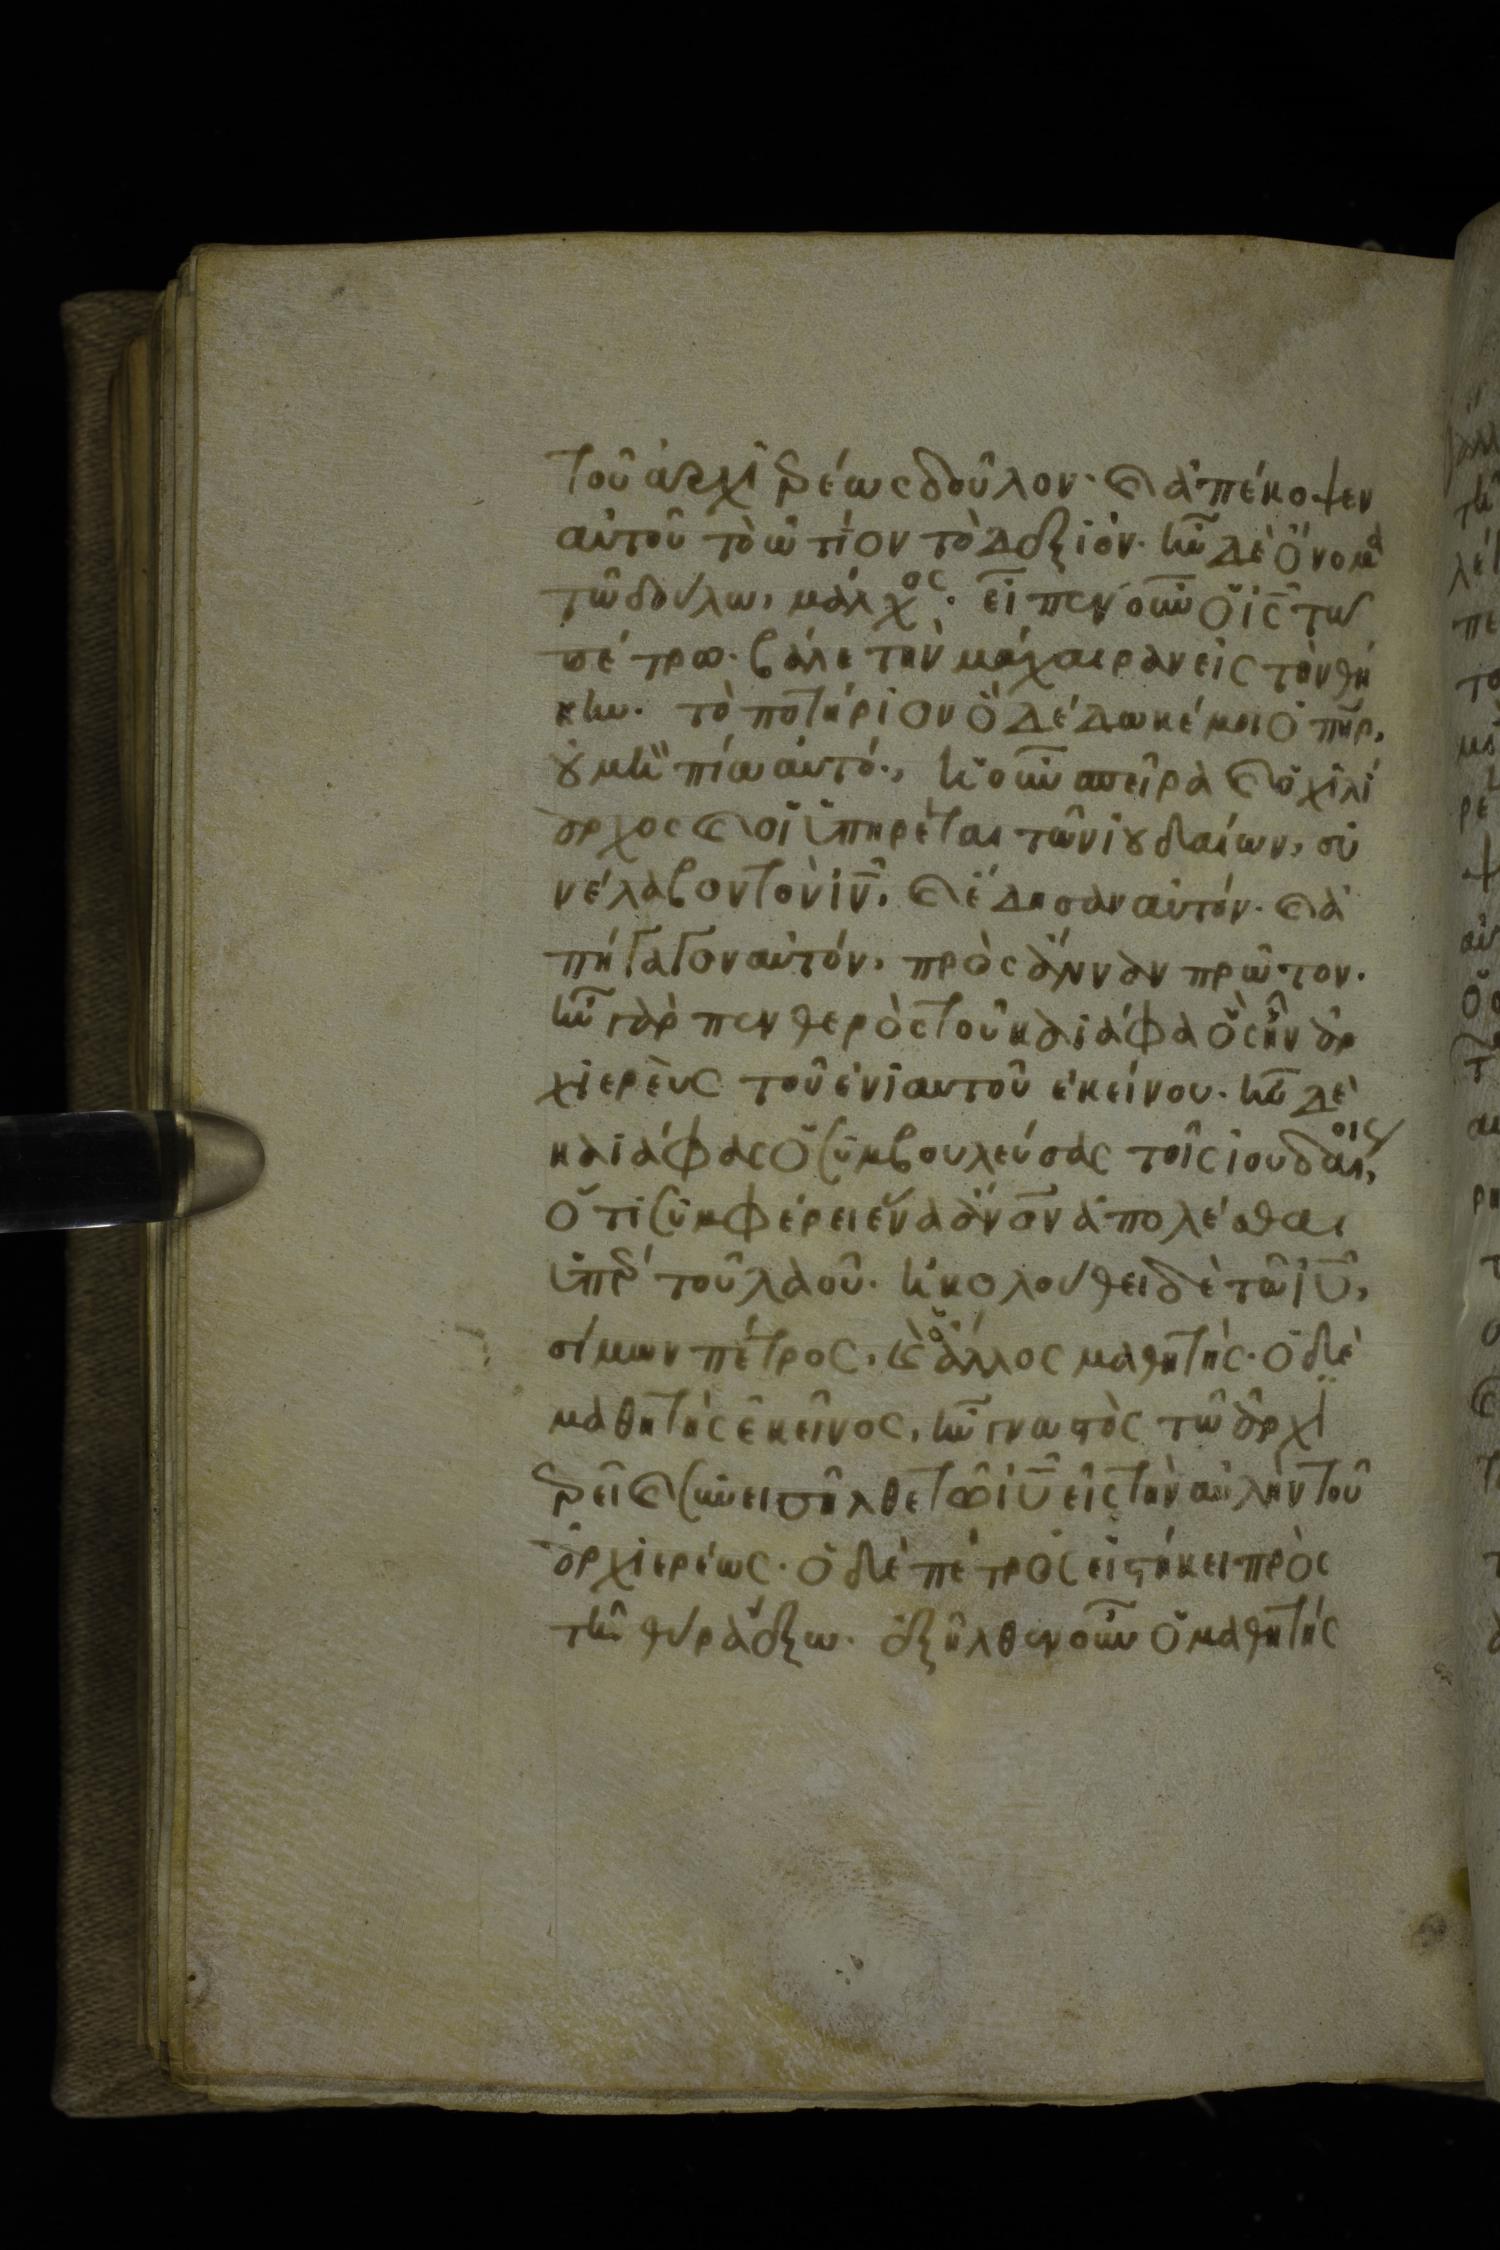 τοῦ ἀρχιερέως δοῦλον· καὶ ἀπέκοψεν
αὐτοῦ τὸ ὠτίον τὸ δεξιόν· ἦν δὲ ὄνομα
τῶ δούλω, μάλχος· εἶπεν οὖν ὁ ις τῶ
πέτρω· βάλε τὴν μάχαιραν εἰς τὴν θή
κην· τὸ ποτήριον ὃ δέδωκέ μοι ὁ πηρ,
οὐ μὴ πίω αὐτό., ἡ οὖν σπεῖρα καὶ ὁ χιλί
αρχος καὶ οἱ ὑπηρέται τῶν ἰουδαίων, συ
νέλαβον τὸν ιν, καὶ ἔδησαν αὐτόν· καὶ ἀ
πήγαγον αὐτόν, πρὸς ἄνναν πρῶτον·
ἦν γὰρ πενθερὸς τοῦ καϊάφα ὃς ἦν ἀρ
χιερεὺς τοῦ ἐνιαυτοῦ ἐκείνου· ἦν δὲ
καϊάφας ὁ συμβουλεύσας τοῖς ἰουδαίοις,
ὅτι συμφέρει ἕνα ἄνον ἀπολέσθαι
ὑπὲρ τοῦ λαοῦ· ἠκολούθει δὲ τῶ ιυ,
σίμων πέτρος, καὶ ὁ ἄλλος μαθητής· ὁ δὲ
μαθητὴς ἐκεῖνος, ἦν γνωστὸς τῶ ἀρχι
ερεῖ καὶ συνεισῆλθε τῶ ιυ εἰς τὴν αὐλὴν τοῦ
ἀρχιερέως· ὁ δὲ πέτρος εἱστήκει πρὸς
τῆ θύρα ἔξω· ἐξῆλθεν οὖν ὁ μαθητής